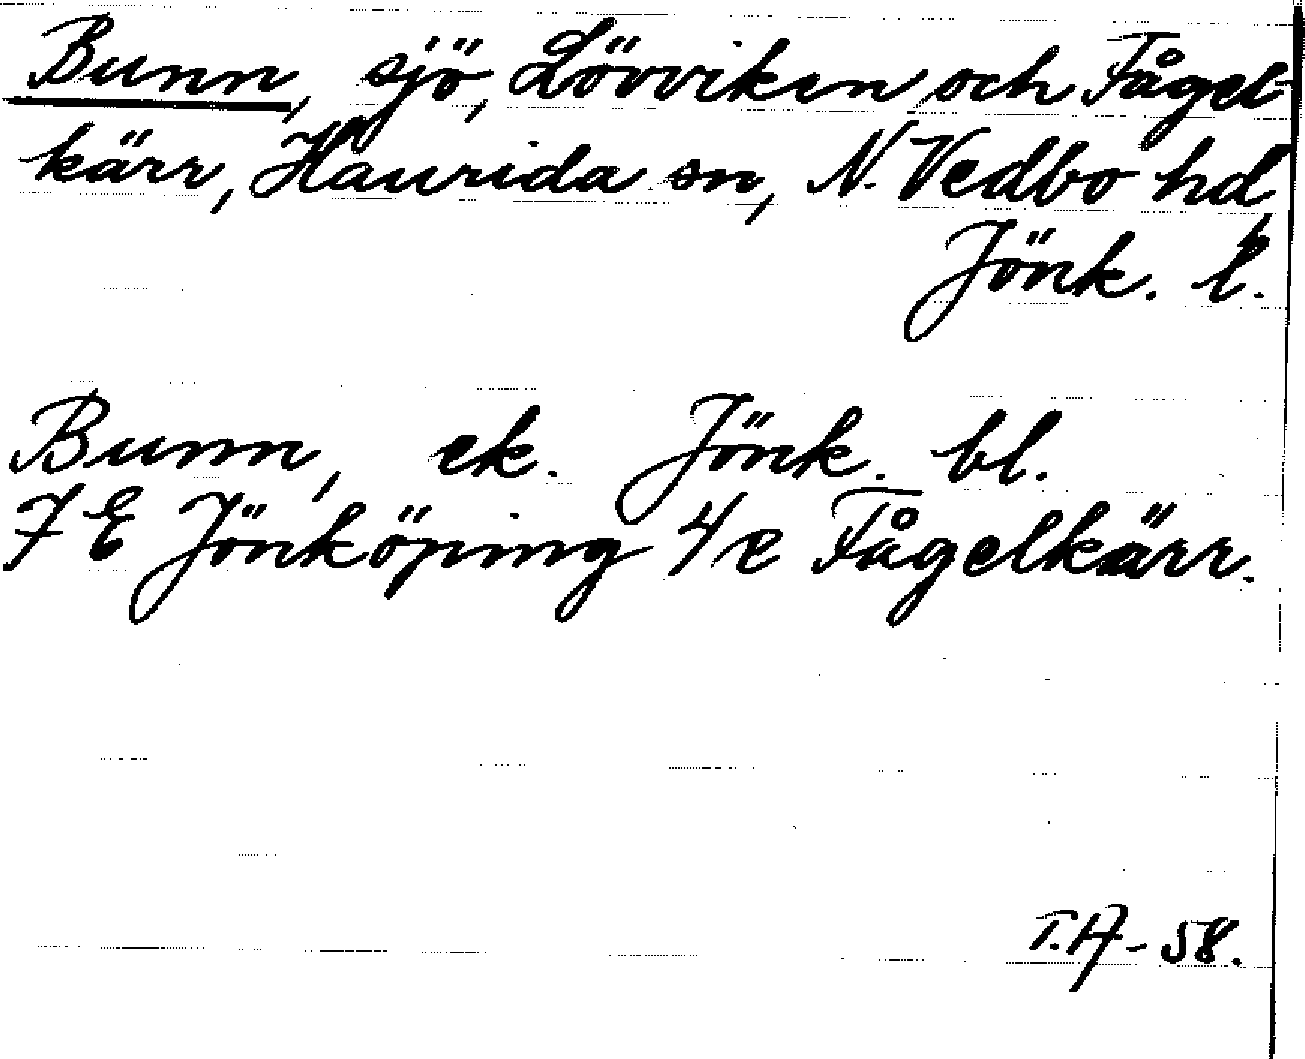 Bunn, sjö, Lövviken och Fågel-
kärr, Haurida sn, N. Vedbo hd,
Jönk. l.
Bunn, ek. Jönk. bl.
7 E Jönköping 4/e Fågelkärr.
T.A-58.